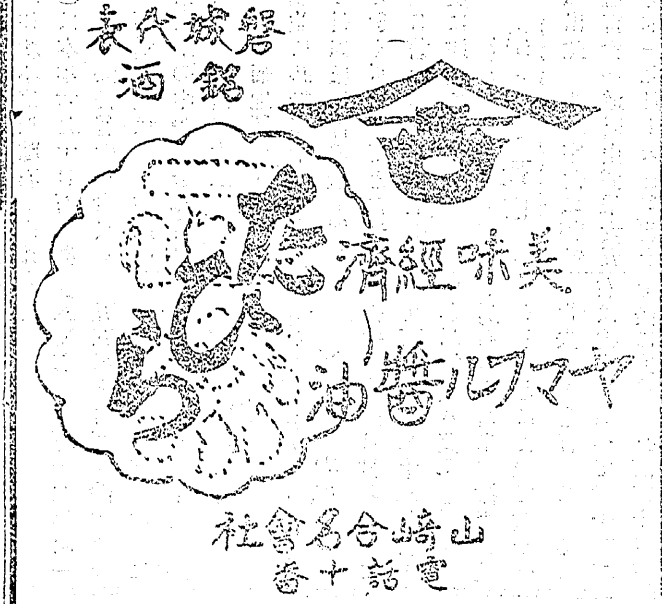 磐城代表
銘酒
たひら
美味經濟
ヤマフル醬油
山崎合名會社
電話十番